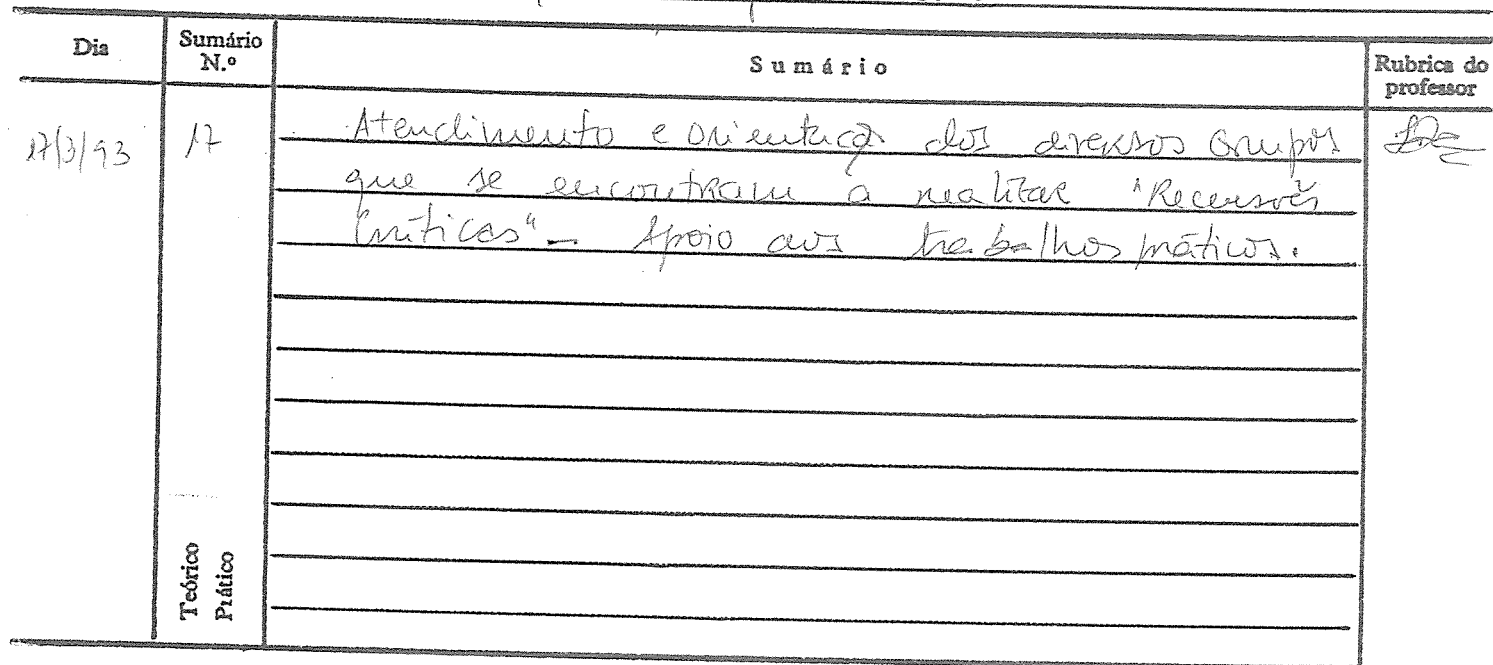 Dia
Sumário N.º
Sumário
Rubrica do professor
17/3/93
17
Atendimento e orientação dos diversos Grupos
que se encontram a realizar "Recensões
Críticas" - Apoio aos trabalhos práticos.
Teórico
Prático